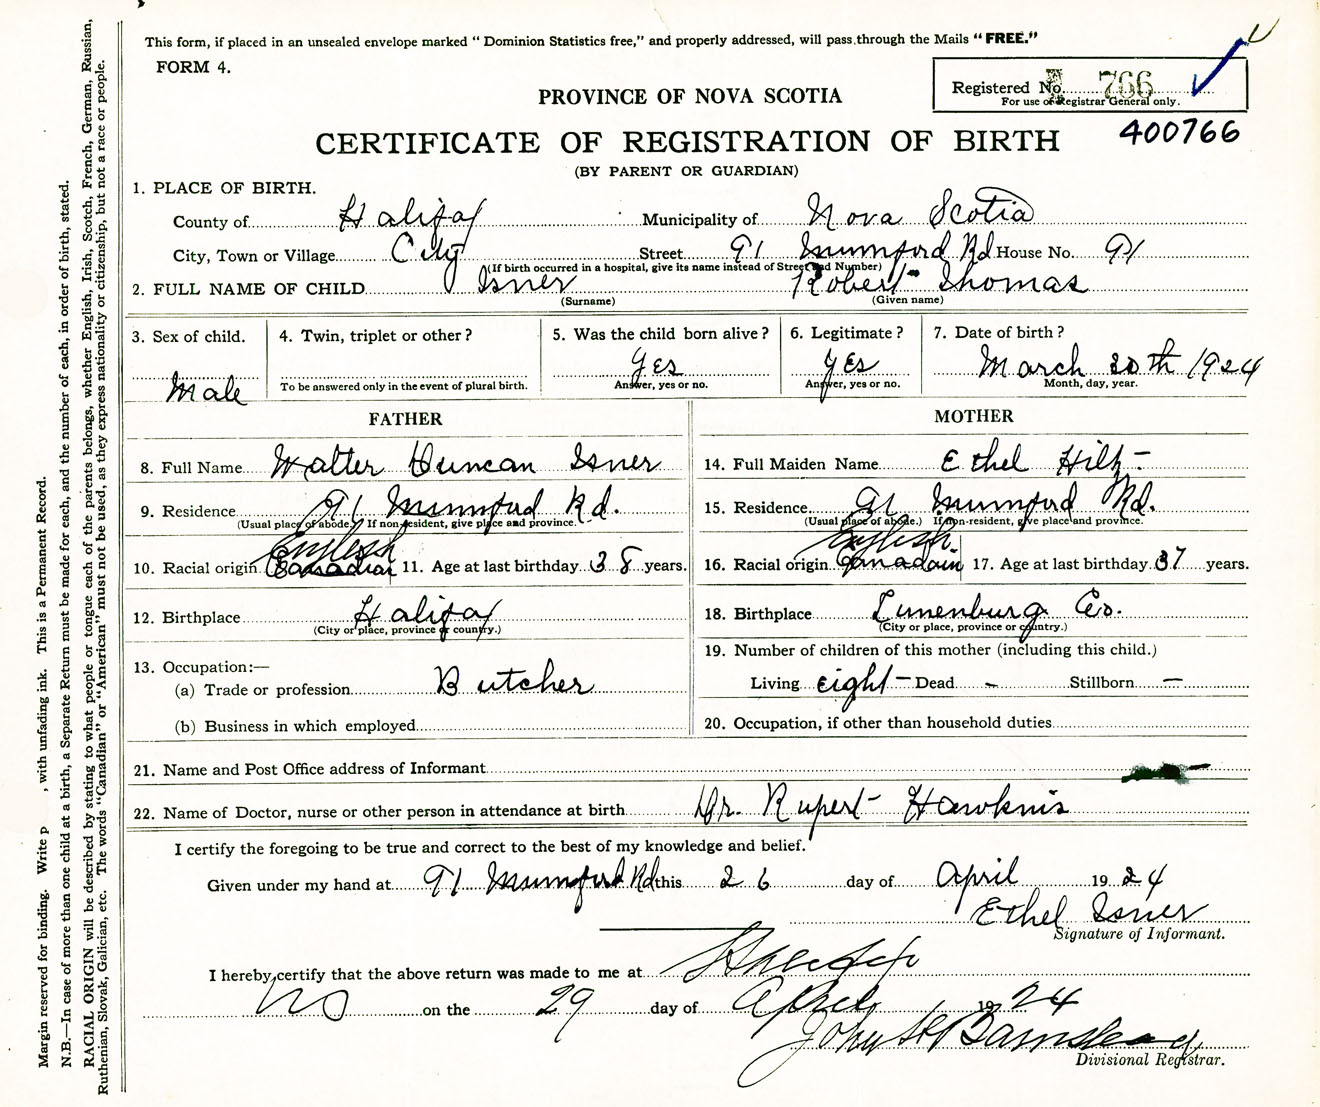 This form, if placed in an unsealed envelope marked " Dominion Statistics free," and properly addressed, will pass through the Mails " FREE."
FORM 4.
Registered No. 766
For use of Registrar General only.
PROVINCE OF NOVA SCOTIA
400766
CERTIFICATE OF REGISTRATION OF BIRTH
(BY PARENT OR GUARDIAN)
1. PLACE OF BIRTH.
County of Halifax Municipality of Nova Scotia
City, Town or Village City Street 91 Mumford Rd House No. 91
(If birth occurred in a hospital, give its name instead of Street and Number)
2. FULL NAME OF CHILD Isner Robert Thomas
(Surname) (Given name)
3. Sex of child. 4. Twin, triplet or other? 5. Was the child born alive? 6. Legitimate? 7. Date of birth?
Male Yes Yes March 20th 1924
To be answered only in the event of plural birth. Answer, yes or no. Answer, yes or no. Month, day, year.
FATHER MOTHER
8. Full Name Walter Duncan Isner 14. Full Maiden Name Ethel Hiltz
9. Residence 91 Mumford Rd. 15. Residence 91 Mumford Rd.
(Usual place of abode.) If non-resident, give place and province. (Usual place of abode.) If non-resident, give place and province.
English English.
10. Racial origin Canadian 11. Age at last birthday 38 years. 16. Racial origin Canadain 17. Age at last birthday 37 years.
12. Birthplace Halifax 18. Birthplace Lunenburg Co.
(City or place, province or country.) (City or place, province or country.)
13. Occupation:— 19. Number of children of this mother (including this child.)
(a) Trade or profession Butcher Living eight - Dead - Stillborn -
(b) Business in which employed 20. Occupation, if other than household duties
21. Name and Post Office address of Informant
22. Name of Doctor, nurse or other person in attendance at birth Dr. Rupert Hawknis
I certify the foregoing to be true and correct to the best of my knowledge and belief.
Given under my hand at 91 Mumford Rd this 26 day of April 1924
Ethel Isner
Signature of Informant.
I hereby certify that the above return was made to me at Halifax
NS on the 29 day of April 1924
John H Barnstead
Divisional Registrar.
Margin reserved for binding. Write p , with unfading ink. This is a Permanent Record.
N.B.—In case of more than one child at a birth, a Separate Return must be made for each, and the number of each, in order of birth, stated.
RACIAL ORIGIN will be described by stating to what people or tongue each of the parents belongs, whether English, Irish, Scotch, French, German, Russian,
Ruthenian, Slovak, Galician, etc. The words "Canadian" or "American" must not be used, as they express nationality or citizenship, but not a race or people.